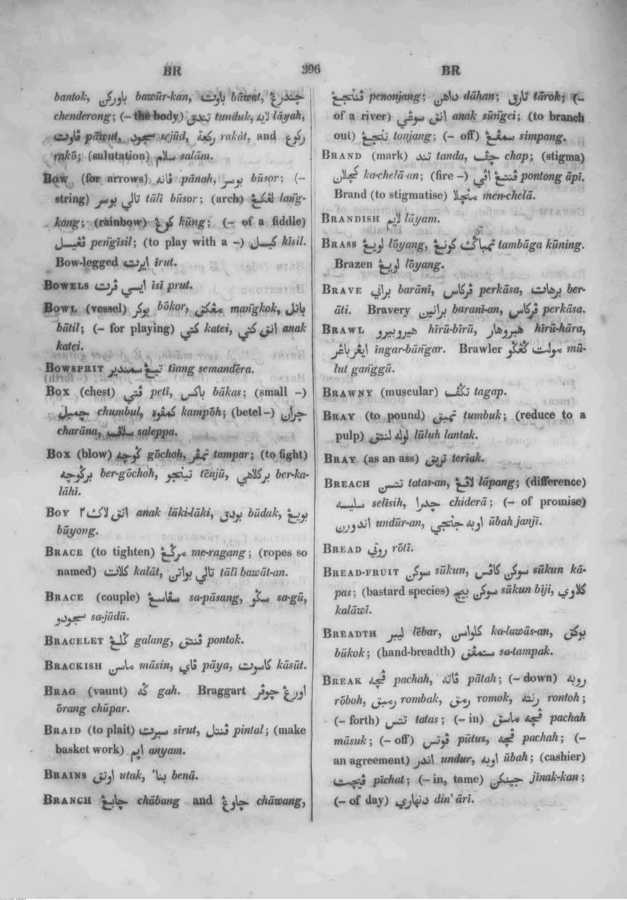 BR 396 BR
bantok, باورکن bawūr-kan, باوت bāwat, چندرغ
chenderong; (– the body) تندق tunduk, لايه lāyah,
ڤاوت pāwut, سجود sejūd, رکعة rakāt, and رکوع
rukū; (salutation) سلام salām.
BOW (for arrows) ڤانه pānah, بوسر būsor; (–
string) تالي بوسر tālī būsor; (arch) لڠکڠ lang-
kong; (rainbow) کوڠ kūng; (– of a fiddle)
ڤڠيسل pengīsil; (to play with a –) کيسل kīsil.
Bow-legged ايرت īrut.
BOWELS ايسي ڤرت isī prut.
BOWL (vessel) بوکر bōkor, مڠکق mangkok, باتل
bātil; (– for playing) کتي katei, انق کتي anak
katei.
BOWSPRIT تيڠ سمندير tīang semandēra.
BOX (chest) ڤتي petī, باکس bākas; (small –)
چمبل chumbul, کمڤوه kampōh; (betel –) چران
charāna, سالڤ saleppa.
BOX (blow) ڬوچه gōchoh, تمڤر tampar; (to fight)
برڬوچه ber-gōchoh, تينجو tēnjū, برکلاهي ber-ka-
lāhi.
BOY انق لاک٢ anak lāki-lāki, بودق būdak, بويڠ
būyong.
BRACE (to tighten) مرڬڠ me-ragang; (ropes so
named) کلات kalāt, تالي بواتن tālī bawāt-an.
BRACE (couple) سڤاسڠ sa-pāsang, سڬو sa-gū,
سجودو sa-jūdū.
BRACELET ڬلڠ galang, ڤنتق pontok.
BRACKISH ماسن māsin, ڤاي pāya, کاسوت kāsūt.
BRAG (vaunt) ڬه gah. Braggart اورڠ چوڤر
ōrang chūpar.
BRAID (to plait) سيرت sirut, ڤنتل pintal; (make
basket work) ايم anyam.
BRAINS اوتق utak, بنا 'benā.
BRANCH چابڠ chābang and چاوڠ chāwang,
ڤننجڠ penonjang; داهن dāhan; تارق tārok; (–
of a river) انق سوڠي anak sūngei; (to branch
out) تنجڠ tonjang; (– off) سمڤڠ simpang.
BRAND (mark) تند tanda, چڤ chap; (stigma)
کچلان ka-chelā-an; (fire –) ڤنتڠ اڤي pontong āpī.
Brand (to stigmatise) منچلا men-chelā.
BRANDISH لايم lāyam.
BRASS لويڠ lōyang, تمباڬ کونڠ tambāga kūning.
Brazen لويڠ lōyang.
BRAVE براني barāni, ڤرکاس perkāsa, برهات ber-
āti. Bravery برانين barani-an, ڤرکاس perkāsa.
BRAWL هيروبيرو hīrū-bīrū, هيروهار hīrū-hāra,
ايڠرباڠر ingar-bāngar. Brawler مولت ڬڠڬو mū-
lut ganggū.
BRAWNY (muscular) تڬڤ tagap.
BRAY (to pound) تمبق tumbuk; (reduce to a
pulp) لوله لنتق lūluh lantak.
BRAY (as an ass) تريق teriak.
BREACH تتسن tatas-an, لاڤڠ lāpang; (difference)
سليسه selīsih, چدرا chiderā; (– of promise)
اندورن undūr-an, اوبه جنجي ūbah janjī.
BREAD روتي rōtī.
BREAD-FRUIT سوکن sūkun, سوکن کاڤس sūkun kā-
pas; (bastard species) سوکن بيج sūkun biji, کلاوي
kalāwī.
BREADTH ليبر lēbar, کلواسن ka-lawās-an, بوکق
būkok; (hand-breadth) ستمڤق sa-tampak.
BREAK ڤچه pachah, ڤاته pātah; (– down) روبه
rōboh, رمبق rombak, رمق romok, رنته rontoh;
(– forth) تتس tatas; (– in) ڤچه ماسق pachah
māsuk; (– off) ڤوتس pūtus, ڤچه pachah; (–
an agreement) اندر undur, اوبه ūbah; (cashier)
ڤيچت pīchat; (– in, tame) جينکن jīnak-kan;
(– of day) دنهاري din' āri.